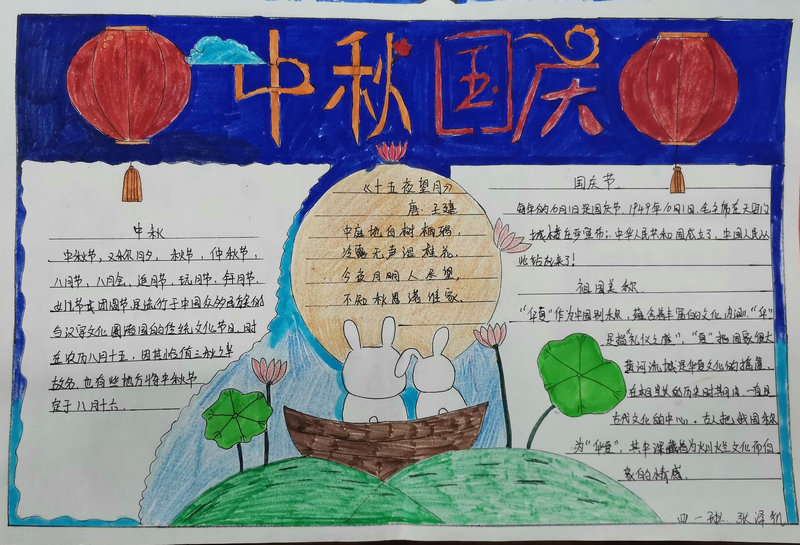 中秋国庆
中秋
中秋节,又称月夕、秋节、仲秋节、
八月节、八月会、追月节、玩月节、拜月节、
女儿节或团圆节,是流行于中国众多民族
与汉字文化圈诸国的传统文化节日,时
在农历八月十五,因其恰值三秋之半
故名,也有些地方将中秋节
定于八月十六。
《十五夜望月》
唐 王建
中庭地白树栖鸦,
冷露无声湿桂花。
今夜月明人尽望
不知秋思落谁家。
国庆节
每年的10月1日是国庆节,1949年10月1日,毛主席在天安门
城楼庄严宣布:中华人民共和国成立了,中国人民从
此站起来了!
祖国美称
“华夏”作为中国别称,蕴含着丰富的文化内涵。“华”
是指“礼仪之族”,“夏”指国家很大
黄河流域是华夏文化的摇篮,
在相当长的历史时期内,一直是
古代文化的中心。古人把我国称
为“华夏”,其中深藏着为灿烂文化而自
豪的情感。
四一班 张泽